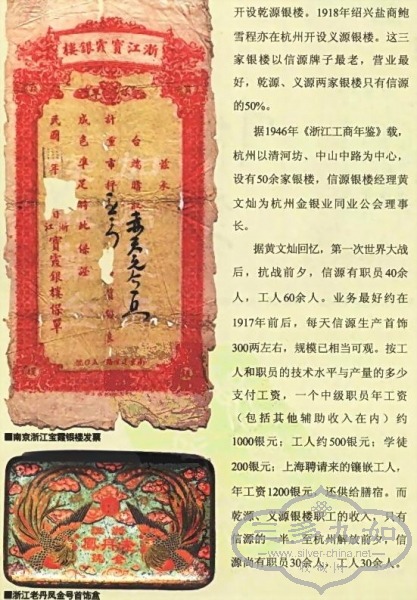 浙江寳霞銀樓
茲承
台端購
計重市秤
成色準足附此條證
民國 年 月 日
浙江寳霞銀樓保單
■南京浙江宝霞银楼发票
■浙江老丹凤金号首饰盒
开设乾源银楼。1918年绍兴盐商鲍
雪程亦在杭州开设义源银楼。这三
家银楼以信源牌子最老，营业最
好，乾源、义源两家银楼只有信源
的50%。
据1946年《浙江工商年鉴》载，
杭州以清河坊、中山中路为中心，
设有50余家银楼，信源银楼经理黄
文灿为杭州金银业同业公会理事
长。
据黄文灿回忆，第一次世界大战
后，抗战前夕，信源有职员40余
人，工人60余人。业务最好约在
1917年前后，每天信源生产首饰
300两左右，规模已相当可观。按工
人和职员的技术水平与产量的多少
支付工资，一个中级职员年工资
（包括其他辅助收入在内）约
1000银元；工人约500银元；学徒
200银元；上海聘请来的镶嵌工人，
年工资1200银元，还供给膳宿。而
乾源、义源银楼职工的收入，只有
信源的一半。至杭州解放前夕，信
源尚有职员30余人，工人30余人。
www.silver-china.net